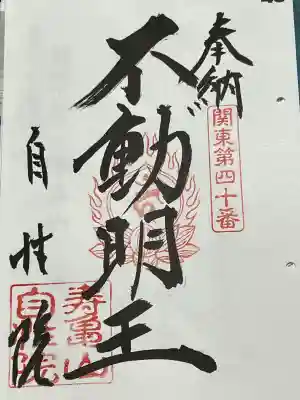 奉納
関東第四十番
不動明王
自性院
寿亀山
自性院